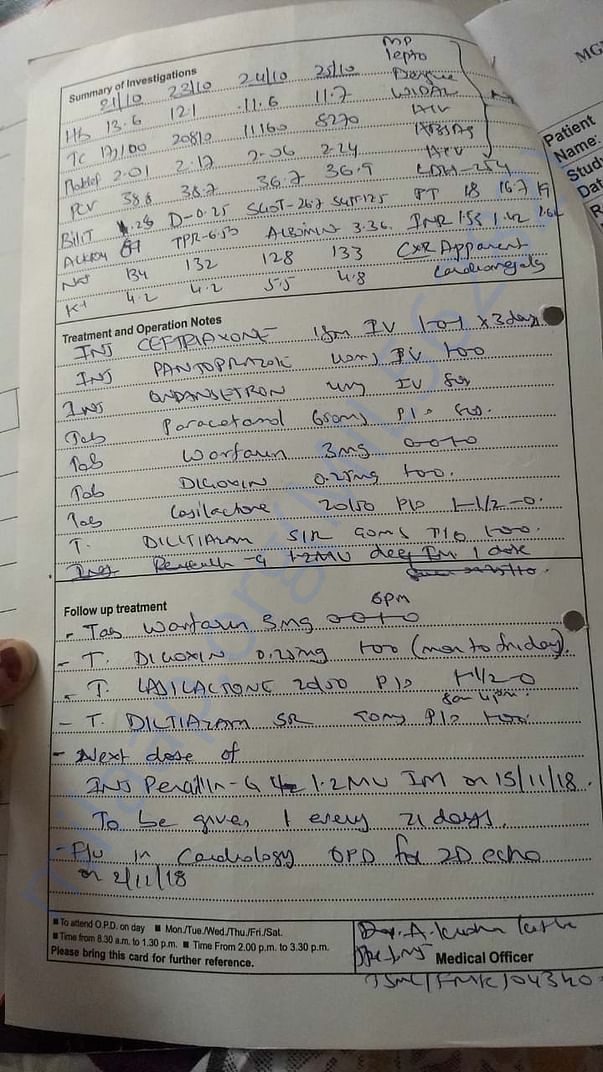 MGM
Patient
Name:
Summary of Investigations
21/10 23/10 24/10 25/10
MP
lepto
Dengue
WIDAL
HIV
HBsAg
HCV
Hb 13.6 12.1 11.6 11.7
TC 17,100 20810 11160 8270
Platelet 2.01 2.17 2.06 2.24
PCV 38.8 38.7 36.7 36.9 LDH - 254
BiliT 1.28 D-0.25 SGOT-26.7 SGPT-125 PT 18 16.7 19
AlkPh 67 TPR-6.53 Albumin 3.36 INR 1.53 1.42
Na+ 134 132 128 133 CXR Apparent
K+ 4.2 4.2 5.5 4.8 Cardiomegaly
Treatment and Operation Notes
INJ CEFTRIAXONE 1gm IV 1-0-1 x 3 days
INJ PANTOPRAZOLE 40mg IV 1-0-0
INJ ONDANSETRON 4mg IV SOS
Tab Paracetamol 650mg P/O SOS.
Tab Warfarin 3mg 0-0-1-0
Tab DIGOXIN 0.25mg 1-0-0.
Tab Lasilactone 20/50 P/O 1-1/2-0.
T. DILTIAZAM S/R 90mg P/O 1-0-0.
Inj Penicillin-G 1.2MU deep IM 1 dose
Follow up treatment
6pm
- Tab Warfarin 3mg 0-0-1-0
- T. DIGOXIN 0.25mg 1-0-0 (mon to friday).
- T. LASILACTONE 20/50 P/O 1-1/2-0
8am 4pm
- T. DILTIAZAM SR 90mg P/O 1-0-0
- Next dose of
INJ Penicillin-G 1.2MU IM on 15/11/18.
To be given 1 every 21 days.
- F/U in Cardiology OPD for 2D echo
on 2/11/18
■ To attend O.P.D. on day ■ Mon./Tue./Wed./Thu./Fri./Sat.
■ Time from 8.30 a.m. to 1.30 p.m. ■ Time From 2.00 p.m. to 3.30 p.m.
Please bring this card for further reference.
Medical Officer